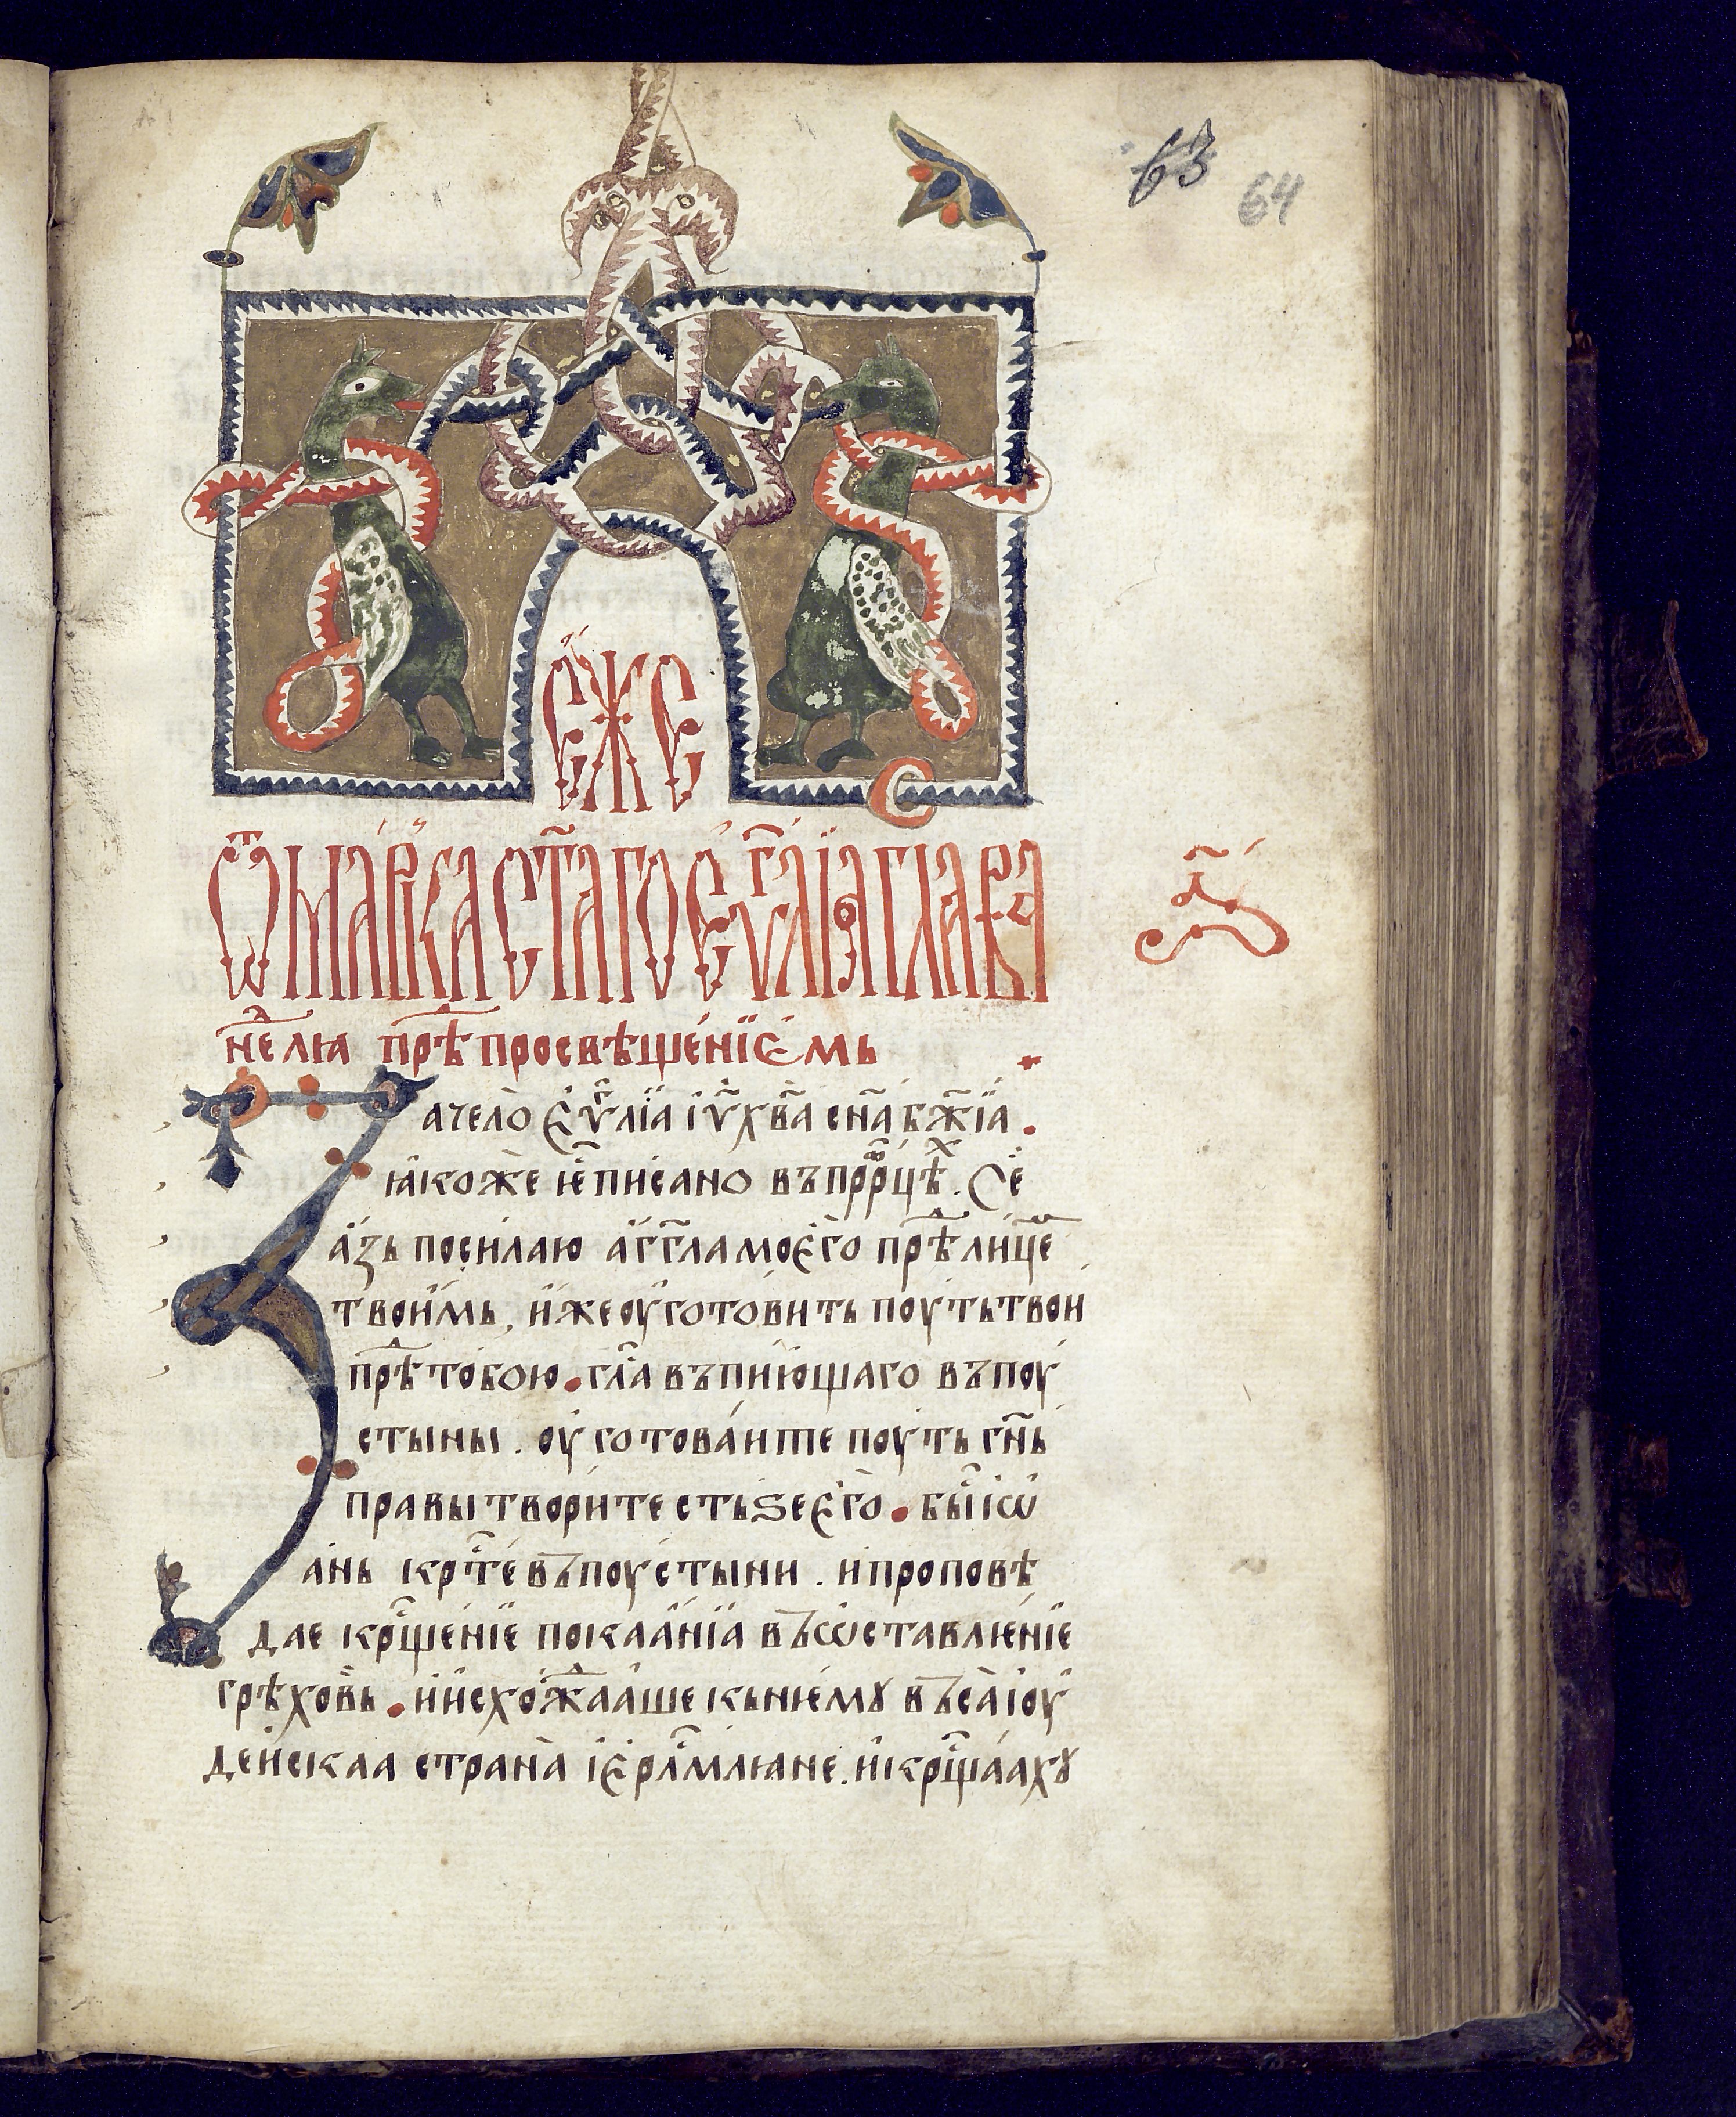 63
64
є҆́же
ѿ ма́рка ст҃а́го є҆ѵⷢ҇лїа гла́ва
а҃
неⷣлꙗ прѣⷣ просвѣщенїємь
Зачело є҆ѵⷢ҇лїа і҆ѵ҃ хв҃а сн҃а бж҃їа .
ꙗкоже ѥⷭ҇ писано въ прⷪ҇рцѣⷯ . Сѐ
азь посилаю агг҃ла моѥго прѣⷣ лицеⷨ
твоимь , иже оуготовить поуть твои
прѣⷣ тобою . глⷭ҇а въпиющаго въ поу
стыны . оуготоваите поуть гн҃ь
правы творите стьѕе єго . быⷭ҇ іѡ
ань крⷭ҇те въ поустыни . и проповѣ
дае крⷭ҇щенїе покаанїа въ ѡставлѥнїе
грѣховь . и исхожⷣааше кь нѥмꙋ въса іоу
деискаа страна і҆єрⷭ҇лмлꙗне . и крⷭ҇щаахꙋ